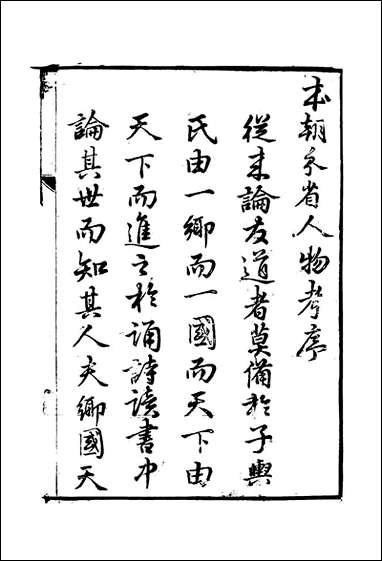 本朝分省人物考序
從来論友道者莫備扵子輿
氏由一鄉而一國而天下由
天下而進之扵誦詩讀書中
論其世而知其人夫鄉國天